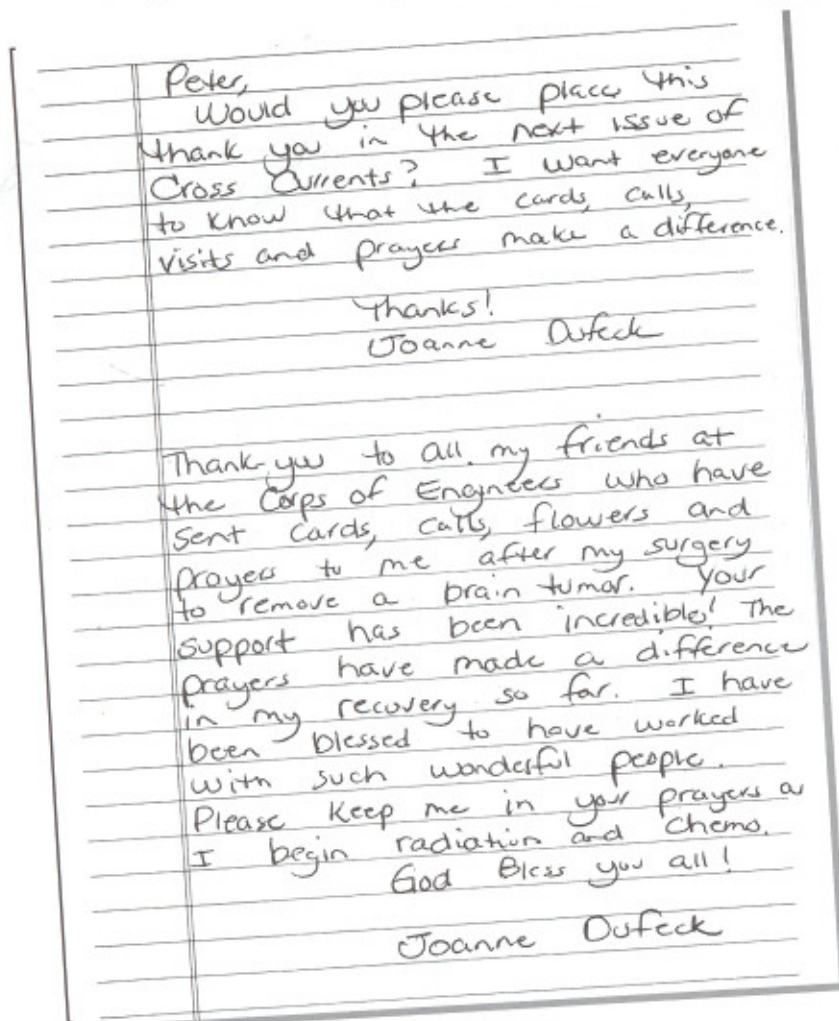 Peter,
Would you please place this
thank you in the next issue of
Cross Currents? I want everyone
to know that the cards, calls,
visits and prayers make a difference.
Thanks!
Joanne Dufeck
Thank you to all my friends at
the Corps of Engineers who have
sent cards, calls, flowers and
prayers to me after my surgery
to remove a brain tumor. Your
support has been incredible! The
prayers have made a difference
in my recovery so far. I have
been blessed to have worked
with such wonderful people.
Please keep me in your prayers as
I begin radiation and chemo.
God Bless you all!
Joanne Dufeck